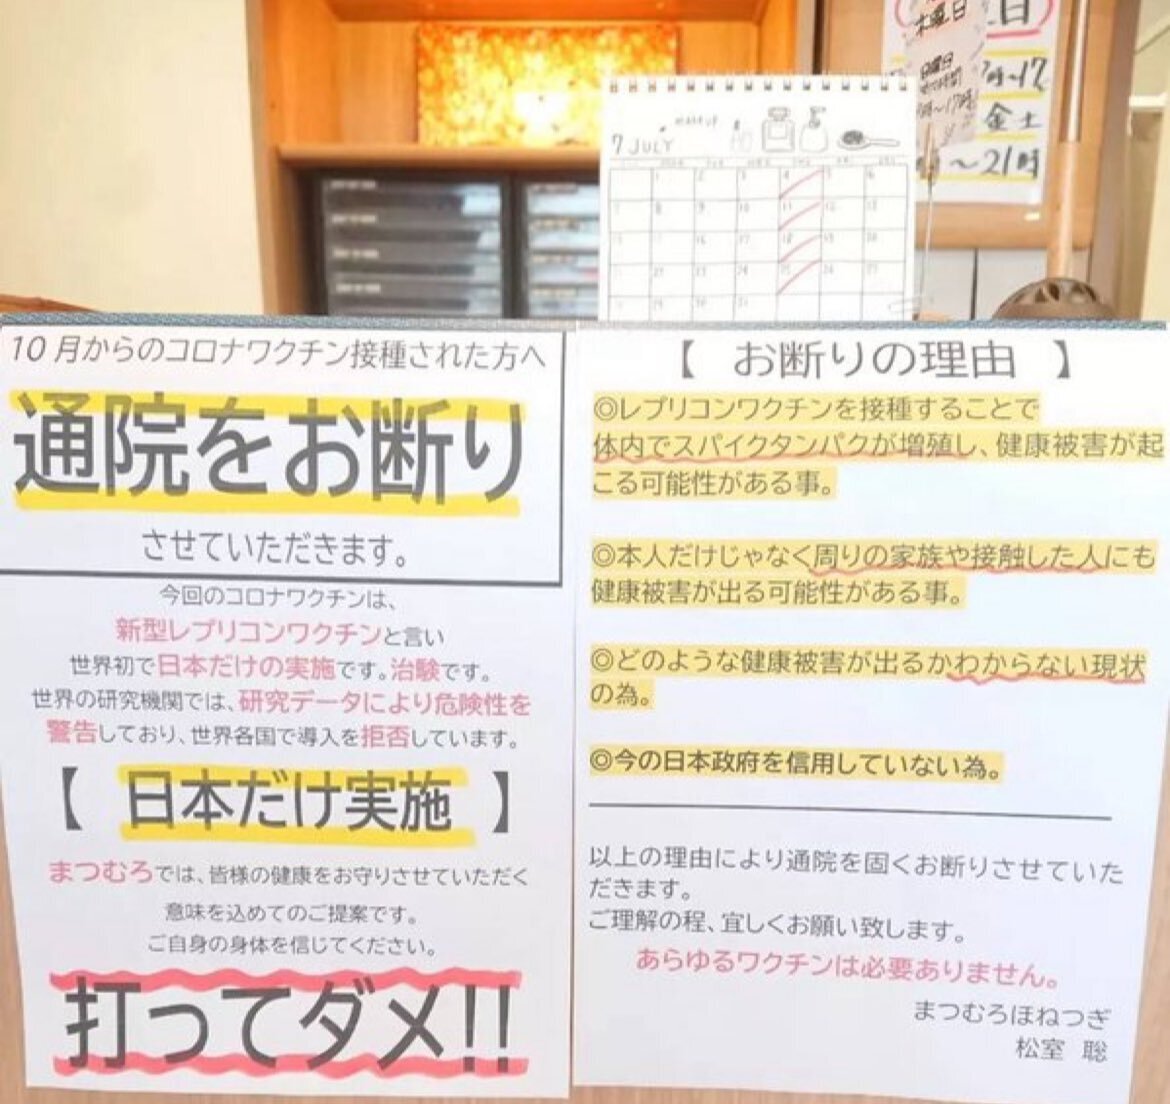 木曜日
日
日曜日
金土
～21時
7 JULY
make up
10月からのコロナワクチン接種された方へ
通院をお断り
させていただきます。
今回のコロナワクチンは、
新型レプリコンワクチンと言い
世界初で日本だけの実施です。治験です。
世界の研究機関では、研究データにより危険性を
警告しており、世界各国で導入を拒否しています。
【 日本だけ実施 】
まつむろでは、皆様の健康をお守りさせていただく
意味を込めてのご提案です。
ご自身の身体を信じてください。
打ってダメ!!
【 お断りの理由 】
◎レプリコンワクチンを接種することで
体内でスパイクタンパクが増殖し、健康被害が起
こる可能性がある事。
◎本人だけじゃなく周りの家族や接触した人にも
健康被害が出る可能性がある事。
◎どのような健康被害が出るかわからない現状
の為。
◎今の日本政府を信用していない為。
以上の理由により通院を固くお断りさせていた
だきます。
ご理解の程、宜しくお願い致します。
あらゆるワクチンは必要ありません。
まつむろほねつぎ
松室 聡